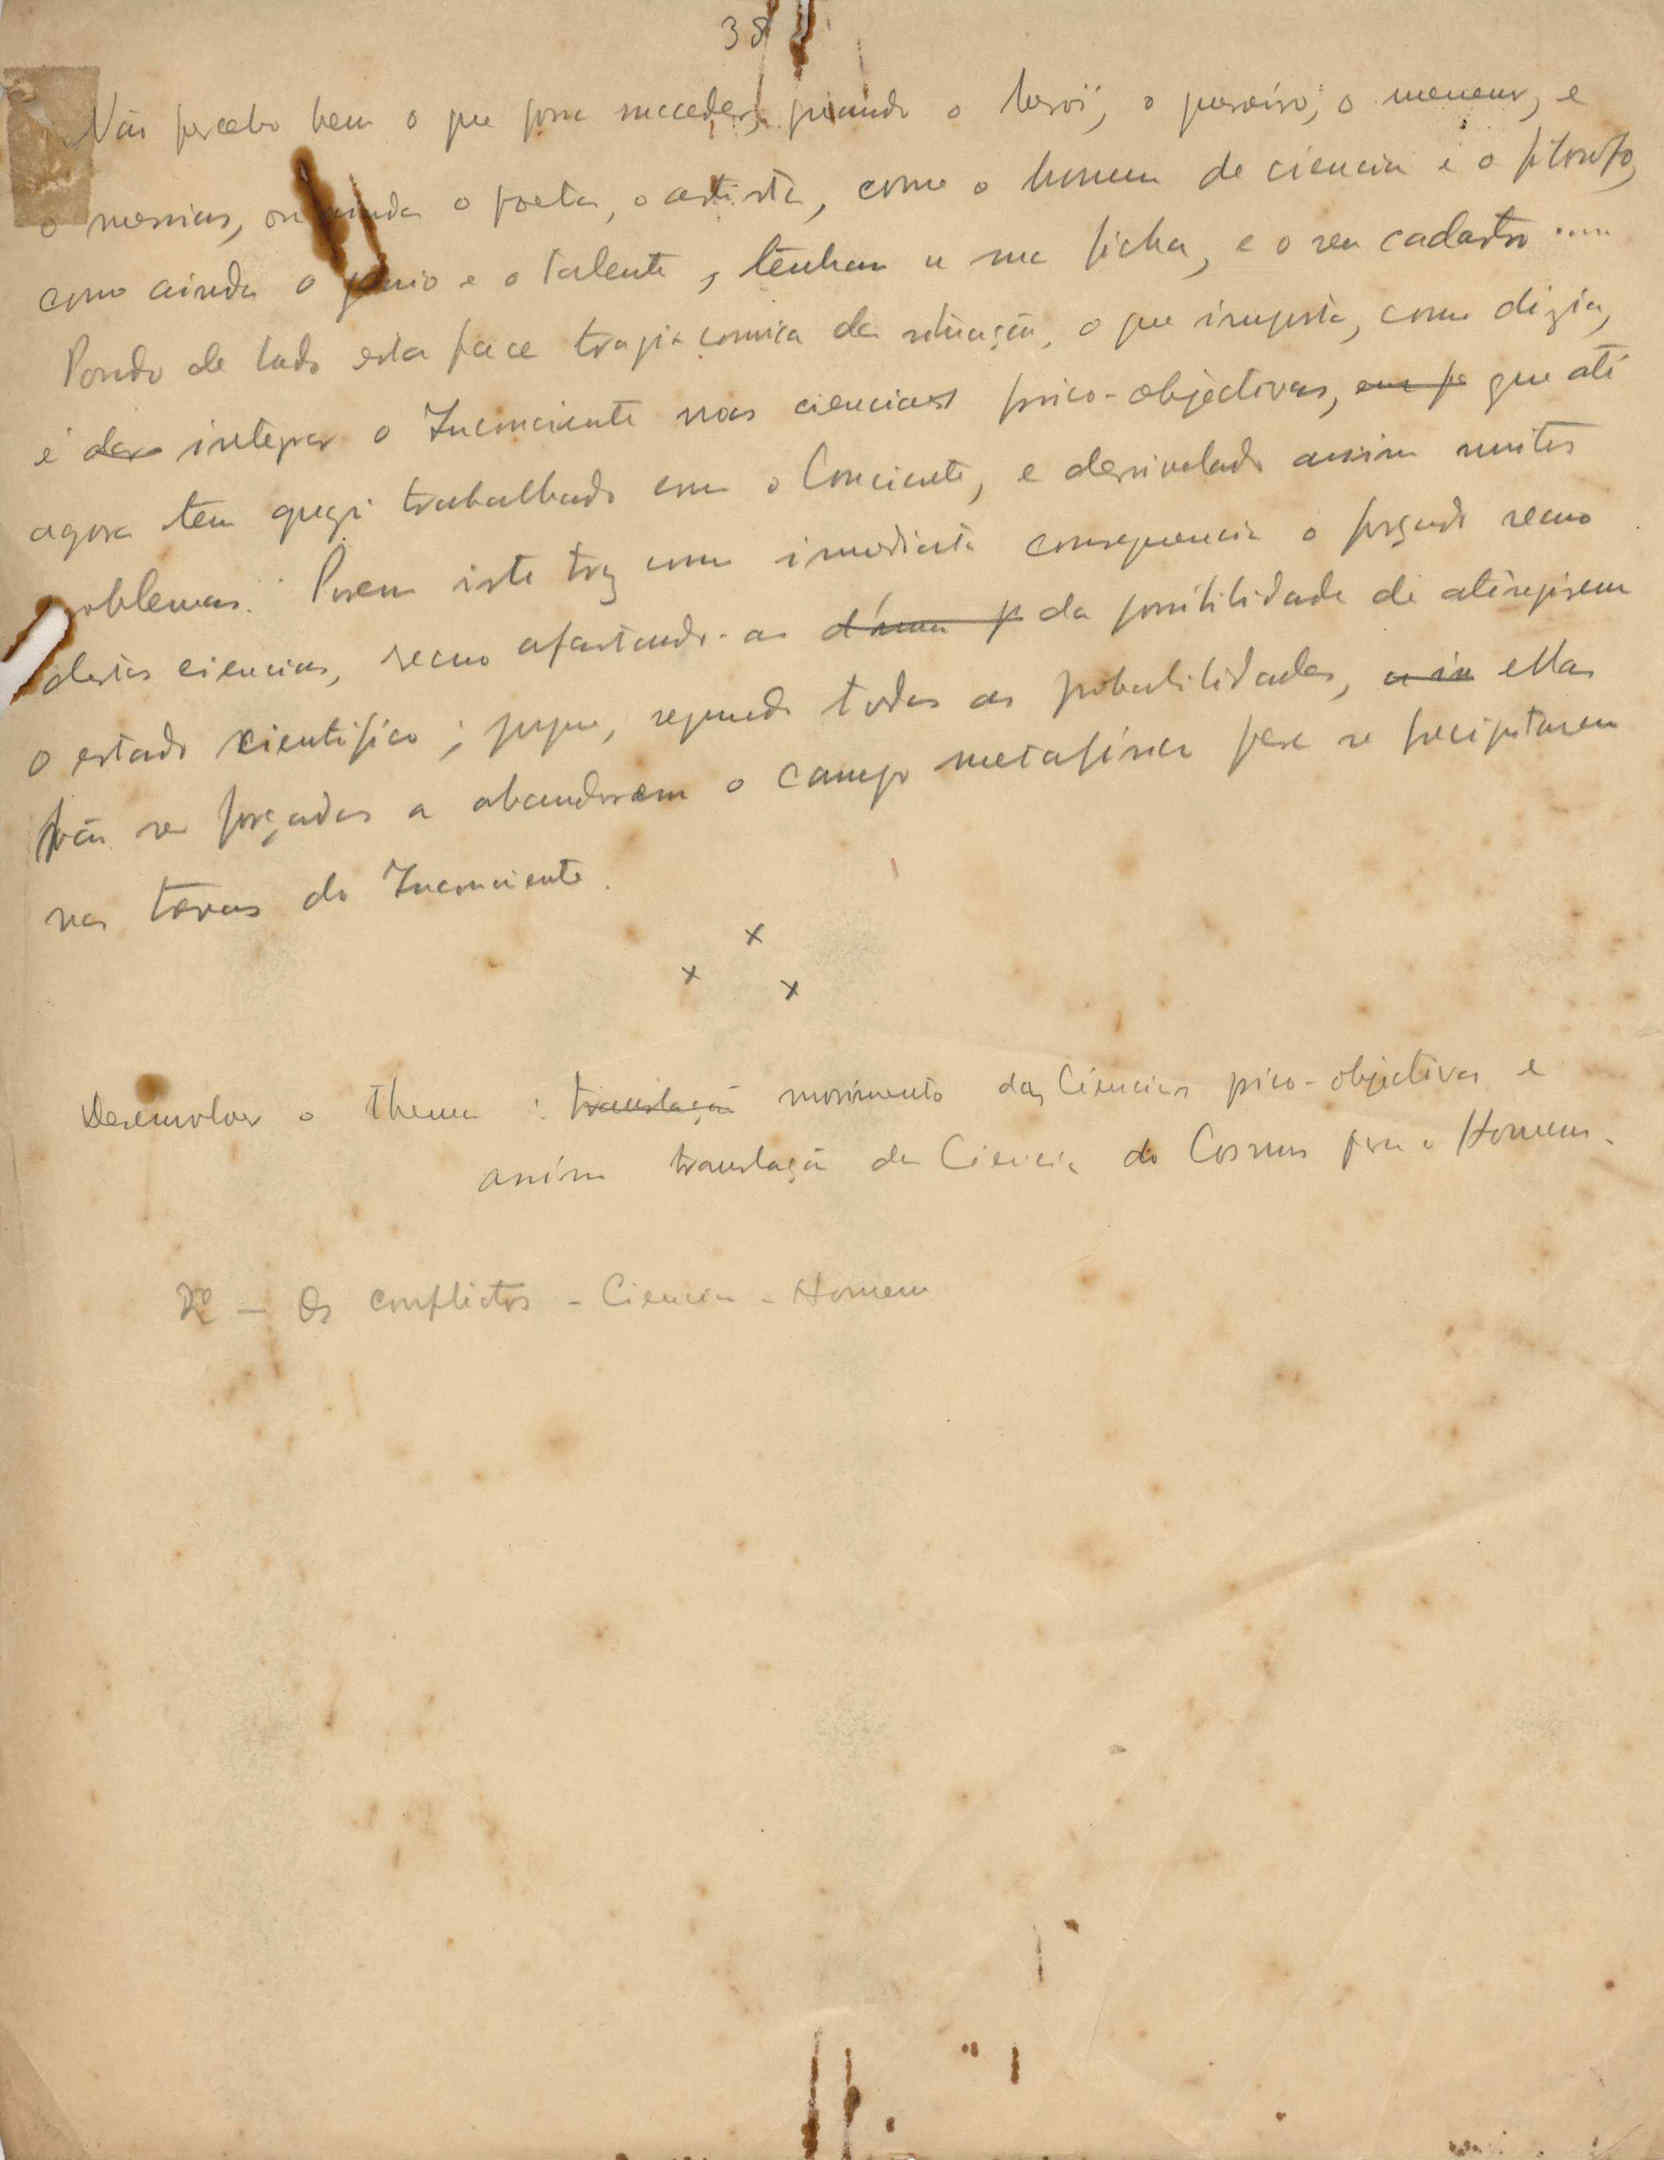 38
Não percebo bem o que possa succeder, quando o heroi, o guerreiro, o meneur, e
o messias, ou ainda o poeta, o artista, como o homem de ciencia e o filosofo,
como ainda o genio e o talento, tenham a sua ficha, e o seu cadastro .....
Pondo de lado esta face tragi-comica da situação, o que importa, como dizia,
é dar integrar o Inconciente nas ciencias psico-objectivas, que até
agora tem quazi trabalhado com o Conciente, e desnivelado assim muitos
problemas. Porem isto traz como imediata consequencia o forçado recuo
destas ciencias, recuo afastando-as d'uma p da possibilidade de atingirem
o estado cientifico; porque, segundo todas as probabilidades, ellas
são forçadas a abandonarem o campo metafisico para se precipitarem
nas trevas do Inconciente.
x
x x
Desenvolver o thema : translação movimento das Ciencias psico-objectivas e
assim translação da Ciencia do Cosmus para o Homem.
2º - Os conflictos - Ciencia - Homem